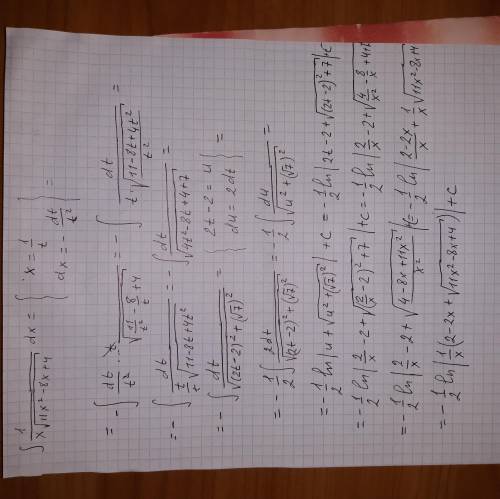 ∫ 1/(x√(11x²-8x+4)) dx = { x = 1/t, dx = -dt/t² } =
= -∫ dt/t² · t/√(11/t² - 8/t + 4) = -∫ dt/(t·√((11-8t+4t²)/t²)) =
= -∫ dt/(t/t √(11-8t+4t²)) = -∫ dt/√(4t²-8t+4+7) =
= -∫ dt/√((2t-2)²+(√7)²) = { 2t-2 = u, du = 2dt } =
= -1/2 ∫ 2dt/√((2t-2)²+(√7)²) = -1/2 ∫ du/√(u²+(√7)²) =
= -1/2 ln|u+√(u²+(√7)²)| + C = -1/2 ln|2t-2+√((2t-2)²+7)| + C
= -1/2 ln|2/x - 2 + √((2/x - 2)²+7)| + C = -1/2 ln|2/x - 2 + √(4/x² - 8/x + 4+7
= -1/2 ln|2/x - 2 + √((4-8x+11x²)/x²)| + C = -1/2 ln|(2-2x)/x + 1/x √(11x²-8x+4
= -1/2 ln|1/x (2-2x+√(11x²-8x+4))| + C